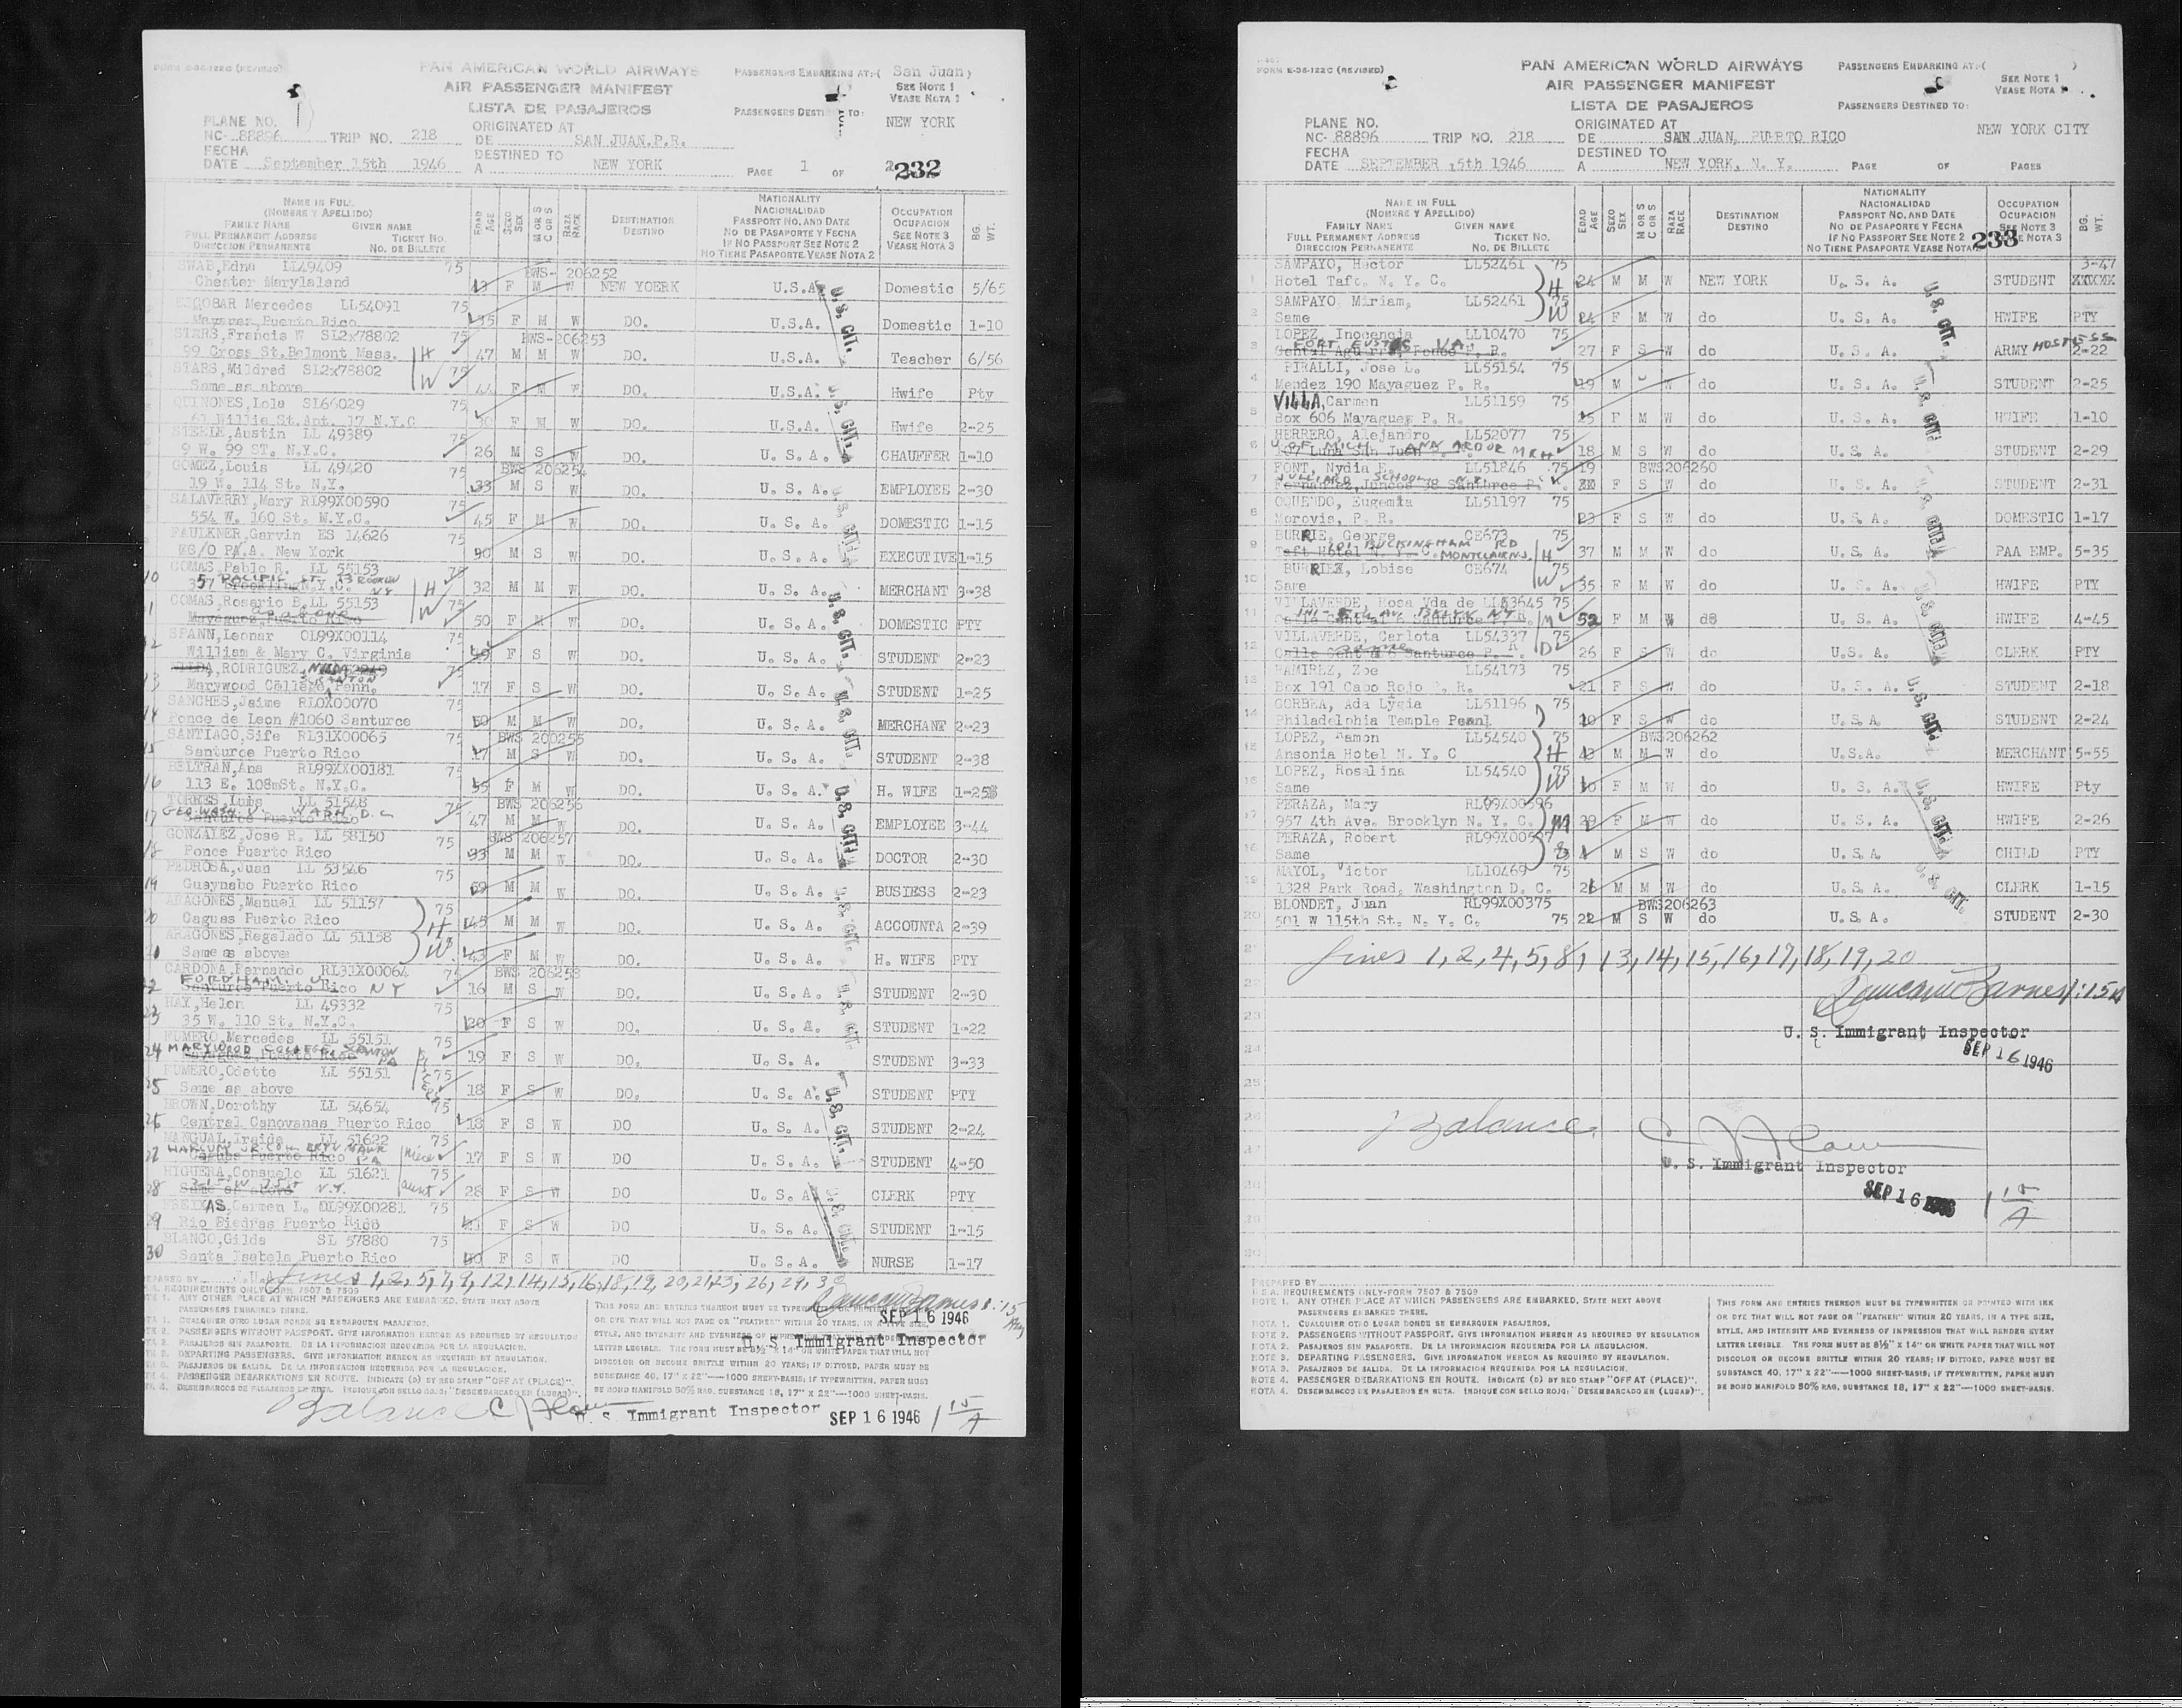 FORM E-36-122C (REVISED)
PAN AMERICAN WORLD AIRWAYS
AIR PASSENGER MANIFEST
LISTA DE PASAJEROS
PASSENGERS EMBARKING AT:( San Juan)
SEE NOTE 1
VEASE NOTA 1
PASSENGERS DESTI TO:
NEW YORK
PLANE NO.
NC- 88896 TRIP NO. 218
ORIGINATED AT
DE SAN JUAN.P.R.
FECHA
DATE September 15th 1946
DESTINED TO
A NEW YORK
PAGE 1 OF 2
232
NAME IN FULL
(NOMBRE Y APELLIDO)
FAMILY NAME GIVEN NAME
FULL PERMANENT ADDRESS TICKET NO.
DIRECCION PERMANENTE NO. DE BILLETE
EDAD AGE
SEXO SEX
M OR S C OR S
RAZA RACE
DESTINATION
DESTINO
NATIONALITY
NACIONALIDAD
PASSPORT NO. AND DATE
NO DE PASAPORTE Y FECHA
IF NO PASSPORT SEE NOTE 2
NO TIENE PASAPORTE VEASE NOTA 2
OCCUPATION
OCUPACION
SEE NOTE 3
VEASE NOTA 3
BG. WT.
SWAB,Edna LL49409 75 BWS- 206252
Chester Marylaland F M W NEW YOERK U.S.A. Domestic 5/65
ESCOBAR Mercedes LL54091 75
Mayaguez,Puerto Rico 35 F M W DO. U.S.A. Domestic 1-10
STARS,Francis W SL2x78802 75 BWS-206253
99 Cross St.Belmont Mass. H 47 M M W DO. U.S.A. Teacher 6/56
STARS,Mildred SL2x78802 W 75
Same as above 44 F M W DO. U.S.A. Hwife Pty
QUINONES,Lola SL66029 75
61 Willis St.Apt. 17 N.Y.C F M W DO. U.S.A. Hwife 2-25
STERLE,Austin LL 49389 75
9 W. 99 ST. N.Y.C. 26 M S W DO. U. S. A. CHAUFFER 1-10
GOMEZ,Louis LL 49420 75 BWS 206254
19 W. 114 St. N.Y. 33 M S W DO. U. S. A. EMPLOYEE 2-30
SALAVERRY,Mary RL99X00590 75
554 W. 160 St. N.Y.C. 45 F M W DO. U. S. A. DOMESTIC 1-15
FAULKNER,Garvin ES 14626 75
C/O P.A.A. New York 30 M S W DO. U. S. A. EXECUTIVE 1-15
COMAS,Pablo R. LL 55153 75
10 57 PACIFIC ST. BROOKLYN NY H 32 M M W DO. U. S. A. MERCHANT 3-38
COMAS,Rosario B.LL 55153 W 75
11 as above Mayaguez,Puerto Rico 50 F M W DO. U. S. A. DOMESTIC PTY
SPANN,Leonar OL99X00114 75
12 William & Mary C. Virginia F S W DO. U. S. A. STUDENT 2-23
RODRIGUEZ, NILDA 75
SCRANTON
13 Marywood College, Penn. 17 F S W DO. U. S. A. STUDENT 1-25
SANCHES,Jaime RL0X00070 75
14 Ponce de Leon #1060 Santurce 50 M M W DO. U. S. A. MERCHANT 2-23
SANTIAGO,Sife RL31X00065 75 BWS 206255
15 Santurce Puerto Rico 17 M S W DO. U. S. A. STUDENT 2-38
BELTRAN,Ana RL99XX00181 75
16 113 E. 108mSt. N.Y.C. 55 F M W DO. U. S. A. H. WIFE 1-25
TORRES,Luis LL 51548 75 BWS 206256
GEO WASH U. WASH D.C
17 Santurce Puerto Rico 47 M M W DO. U. S. A. EMPLOYEE 3-44
GONZALEZ,Jose R. LL 58150 75 BWS 206257
18 Ponce Puerto Rico 33 M M W DO. U. S. A. DOCTOR 2-30
PEDROSA,Juan LL 53546 75
19 Guaynabo Puerto Rico 69 M M W DO. U. S. A. BUSIESS 2-23
ARAGONES,Manuel LL 51157 75
20 Caguas Puerto Rico H 45 M M W DO. U. S. A. ACCOUNTA 2-39
ARAGONES,Regalado LL 51158 W
21 Same as above 43 F M W DO. U. S. A. H. WIFE PTY
CARDONA,Fernando RL31X00064 75 BWS 206258
FORDHAM U
22 Santurce Puerto Rico N Y 16 M S W DO. U. S. A. STUDENT 2-30
HAY,Helen LL 49332 75
23 35 W. 110 St. N.Y.C. 20 F S W DO. U. S. A. STUDENT 1-22
FUMERO,Mercedes LL 55151 75
24 MARYWOOD COLLEGE SCRANTON PA 19 F S W DO. U. S. A. STUDENT 3-33
FUMERO,Odette LL 55151 75
25 Same as above 18 F S W DO. U. S. A. STUDENT PTY
BROWN,Dorothy LL 54654 75
26 Central Canovanas Puerto Rico 18 F S W DO U. S. A. STUDENT 2-24
MANGUAL,Iraida LL 51622 75
HARCUM JR COLL BRYN MAWR
27 Caguas Puerto Rico PA niece 17 F S W DO U. S. A. STUDENT 4-50
HIGUERA,Consuelo LL 51621 75
28 Same as above N.Y. aunt 28 F S W DO U. S. A. CLERK PTY
AS,Carmen L. OL99X00281 75
29 Rio Piedras Puerto Rico 21 F S W DO U. S. A. STUDENT 1-15
BLANCO,Gilda SL 57880 75
30 Santa Isabela Puerto Rico 40 F S W DO U. S. A. NURSE 1-17
U. S. CIT.
PREPARED BY
Lines 1, 2, 5, 7, 9, 12, 14, 15, 16, 18, 19, 20, 21, 23, 26, 29, 30
U.S.A. REQUIREMENTS ONLY-FORM 7507 & 7509
NOTE 1. ANY OTHER PLACE AT WHICH PASSENGERS ARE EMBARKED, STATE NEXT ABOVE
PASSENGERS EMBARKED THERE.
NOTA 1. CUALQUIER OTRO LUGAR DONDE SE EMBARQUEN PASAJEROS.
NOTE 2. PASSENGERS WITHOUT PASSPORT. GIVE INFORMATION HEREON AS REQUIRED BY REGULATION
NOTA 2. PASAJEROS SIN PASAPORTE. DE LA INFORMACION REQUERIDA POR LA REGULACION.
NOTE 3. DEPARTING PASSENGERS. GIVE INFORMATION HEREON AS REQUIRED BY REGULATION.
NOTA 3. PASAJEROS DE SALIDA. DE LA INFORMACION REQUERIDA POR LA REGULACION.
NOTE 4. PASSENGER DEBARKATIONS EN ROUTE. INDICATE (D) BY RED STAMP "OFF AT (PLACE)".
NOTA 4. DESEMBARCOS DE PASAJEROS EN RUTA. INDIQUE CON SELLO ROJO: "DESEMBARCADO EN (LUGAR)".
SEP 16 1946
U. S. Immigrant Inspector
Balance
U. S. Immigrant Inspector SEP 16 1946
FORM E-36-122C (REVISED)
PAN AMERICAN WORLD AIRWAYS
AIR PASSENGER MANIFEST
LISTA DE PASAJEROS
PASSENGERS EMBARKING AT:( )
SEE NOTE 1
VEASE NOTA 1
PASSENGERS DESTINED TO:
NEW YORK CITY
PLANE NO.
NC- 88896 TRIP NO. 218
ORIGINATED AT
DE SAN JUAN, PUERTO RICO
FECHA
DATE SEPTEMBER 15th 1946
DESTINED TO
A NEW YORK, N. Y.
PAGE OF PAGES
NAME IN FULL
(NOMBRE Y APELLIDO)
FAMILY NAME GIVEN NAME
FULL PERMANENT ADDRESS TICKET NO.
DIRECCION PERMANENTE NO. DE BILLETE
EDAD AGE
SEXO SEX
M OR S C OR S
RAZA RACE
DESTINATION
DESTINO
NATIONALITY
NACIONALIDAD
PASSPORT NO. AND DATE
NO DE PASAPORTE Y FECHA
IF NO PASSPORT SEE NOTE 2
NO TIENE PASAPORTE VEASE NOTA 2
OCCUPATION
OCUPACION
SEE NOTE 3
VEASE NOTA 3
BG. WT.
233
SAMPAYO, Hector LL52461 75 3-47
1 Hotel Taft. N. Y. C. H 24 M M W NEW YORK U. S. A. STUDENT
SAMPAYO, Miriam, LL52461 75
2 Same W 24 F M W do U. S. A. HWIFE PTY
LOPEZ, Inocencia LL10470 75
FORT EUSTIS VA.
3 Cental Aguirre, Ponce P. R. 27 F S W do U. S. A. ARMY HOSTESS 2-22
PIRALLI, Jose L. LL55154 75
4 Mendez 190 Mayaguez P. R. 19 M W do U. S. A. STUDENT 2-25
VILLA,Carmen LL51159 75
5 Box 606 Mayaguez P. R. 25 F M W do U. S. A. HWIFE 1-10
HERRERO, Alejandro LL52077 75
U. OF MICH ANN ARBOR MICH
6 Luna San Juan 18 M S W do U. S. A. STUDENT 2-29
FONT, Nydia E. LL51846 75 19 BWS206260
JULLIARD SCHOOL N.Y.
7 Fernandez,Juncos 98 Santurce P. F S W do U. S. A. STUDENT 2-31
OQUENDO, Eugemia LL51197 75
8 Morovis, P. R. 23 F S W do U. S. A. DOMESTIC 1-17
BURRIE, George CE673 75
BUCKINGHAM RD
9 Taft Hotel N. Y. C. MONTCLAIR NJ H 37 M M W do U. S. A. PAA EMP. 5-35
BURRIE, Lobise CE674 75
10 Same W 35 F M W do U. S. A. HWIFE PTY
VILLAVERDE, Rosa Vda de LL53645 75
11 Calle Central 6 Santurce P. R. M 52 F M W do U. S. A. HWIFE 4-45
VILLAVERDE, Carlota LL54337 75
same
12 Calle Cent 6 Santurce P. R. D 26 F S W do U.S. A. CLERK PTY
RAMIREZ, Zoe LL54173 75
13 Box 191 Cabo Rojo P. R. 21 F S W do U. S. A. STUDENT 2-18
CORBEA, Ada Lygia LL51196 75
14 Philadelphia Temple Penn 20 F S W do U. S. A. STUDENT 2-24
LOPEZ, Ramon LL54540 75 BWS206262
15 Ansonia Hotel N. Y. C H 43 M M W do U.S.A. MERCHANT 5-55
LOPEZ, Rosalina LL54540 75
16 Same W F M W do U. S. A. HWIFE Pty
PERAZA, Mary RL99X00596 75
17 957 4th Ave. Brooklyn N. Y. C. M F M W do U. S. A. HWIFE 2-26
PERAZA, Robert RL99X00597
18 Same M S W do U. S. A. CHILD PTY
MAYOL, Victor LL10469 75
19 1328 Park Road, Washington D. C. 26 M M W do U. S. A. CLERK 1-15
BLONDET, Juan RL99X00375 BWS206263
20 501 W 115th St. N. Y. C. 75 22 M S W do U. S. A. STUDENT 2-30
U. S. CIT.
21 Lines 1, 2, 4, 5, 8, 13, 14, 15, 16, 17, 18, 19, 20
22
23 U. S. Immigrant Inspector
24 SEP 16 1946
25
26 Balance.
27 U. S. Immigrant Inspector
28 SEP 16 1946
29
30
PREPARED BY
U.S.A. REQUIREMENTS ONLY-FORM 7507 & 7509
NOTE 1. ANY OTHER PLACE AT WHICH PASSENGERS ARE EMBARKED, STATE NEXT ABOVE
PASSENGERS EMBARKED THERE.
NOTA 1. CUALQUIER OTRO LUGAR DONDE SE EMBARQUEN PASAJEROS.
NOTE 2. PASSENGERS WITHOUT PASSPORT. GIVE INFORMATION HEREON AS REQUIRED BY REGULATION
NOTA 2. PASAJEROS SIN PASAPORTE. DE LA INFORMACION REQUERIDA POR LA REGULACION.
NOTE 3. DEPARTING PASSENGERS. GIVE INFORMATION HEREON AS REQUIRED BY REGULATION.
NOTA 3. PASAJEROS DE SALIDA. DE LA INFORMACION REQUERIDA POR LA REGULACION.
NOTE 4. PASSENGER DEBARKATIONS EN ROUTE. INDICATE (D) BY RED STAMP "OFF AT (PLACE)".
NOTA 4. DESEMBARCOS DE PASAJEROS EN RUTA. INDIQUE CON SELLO ROJO: "DESEMBARCADO EN (LUGAR)".
THIS FORM AND ENTRIES THEREON MUST BE TYPEWRITTEN OR PRINTED WITH INK
OR DYE THAT WILL NOT FADE OR "FEATHER" WITHIN 20 YEARS, IN A TYPE SIZE,
STYLE, AND INTENSITY AND EVENNESS OF IMPRESSION THAT WILL RENDER EVERY
LETTER LEGIBLE. THE FORM MUST BE 8½" X 14" ON WHITE PAPER THAT WILL NOT
DISCOLOR OR BECOME BRITTLE WITHIN 20 YEARS; IF DITTOED, PAPER MUST BE
SUBSTANCE 40, 17" X 22"—1000 SHEET-BASIS; IF TYPEWRITTEN, PAPER MUST
BE BOND MANIFOLD 50% RAG, SUBSTANCE 18, 17" X 22"—1000 SHEET-BASIS.